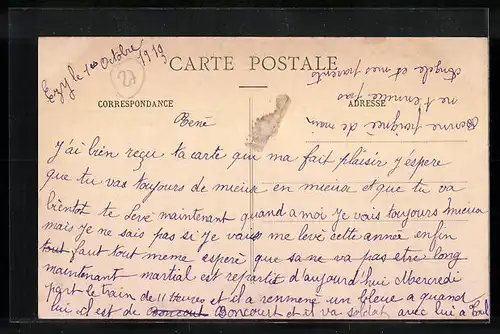 Ezy le 1er Octobre 1919
27
CARTE POSTALE
CORRESPONDANCE
ADRESSE
Bonne poignée de main
ne t'ennuie pas
Angèle et mes parents
René
J'ai bien reçu ta carte qui ma fait plaisir j'éspere
que tu vas toujours de mieux en mieux et que tu va
bientot te levé maintenant quand a moi je vais toujours mieux
mais je ne sais pas si je vais me levé cette année enfin
tout faut tout meme esperé que sa ne va pas etre long
maintenant martial est repartit d'aujourd'hui Mercredi
part le train de 11 Heures et il a renmené un bleue a quand
lui il est de Boncourt Boncourt et il va soldat avec lui a